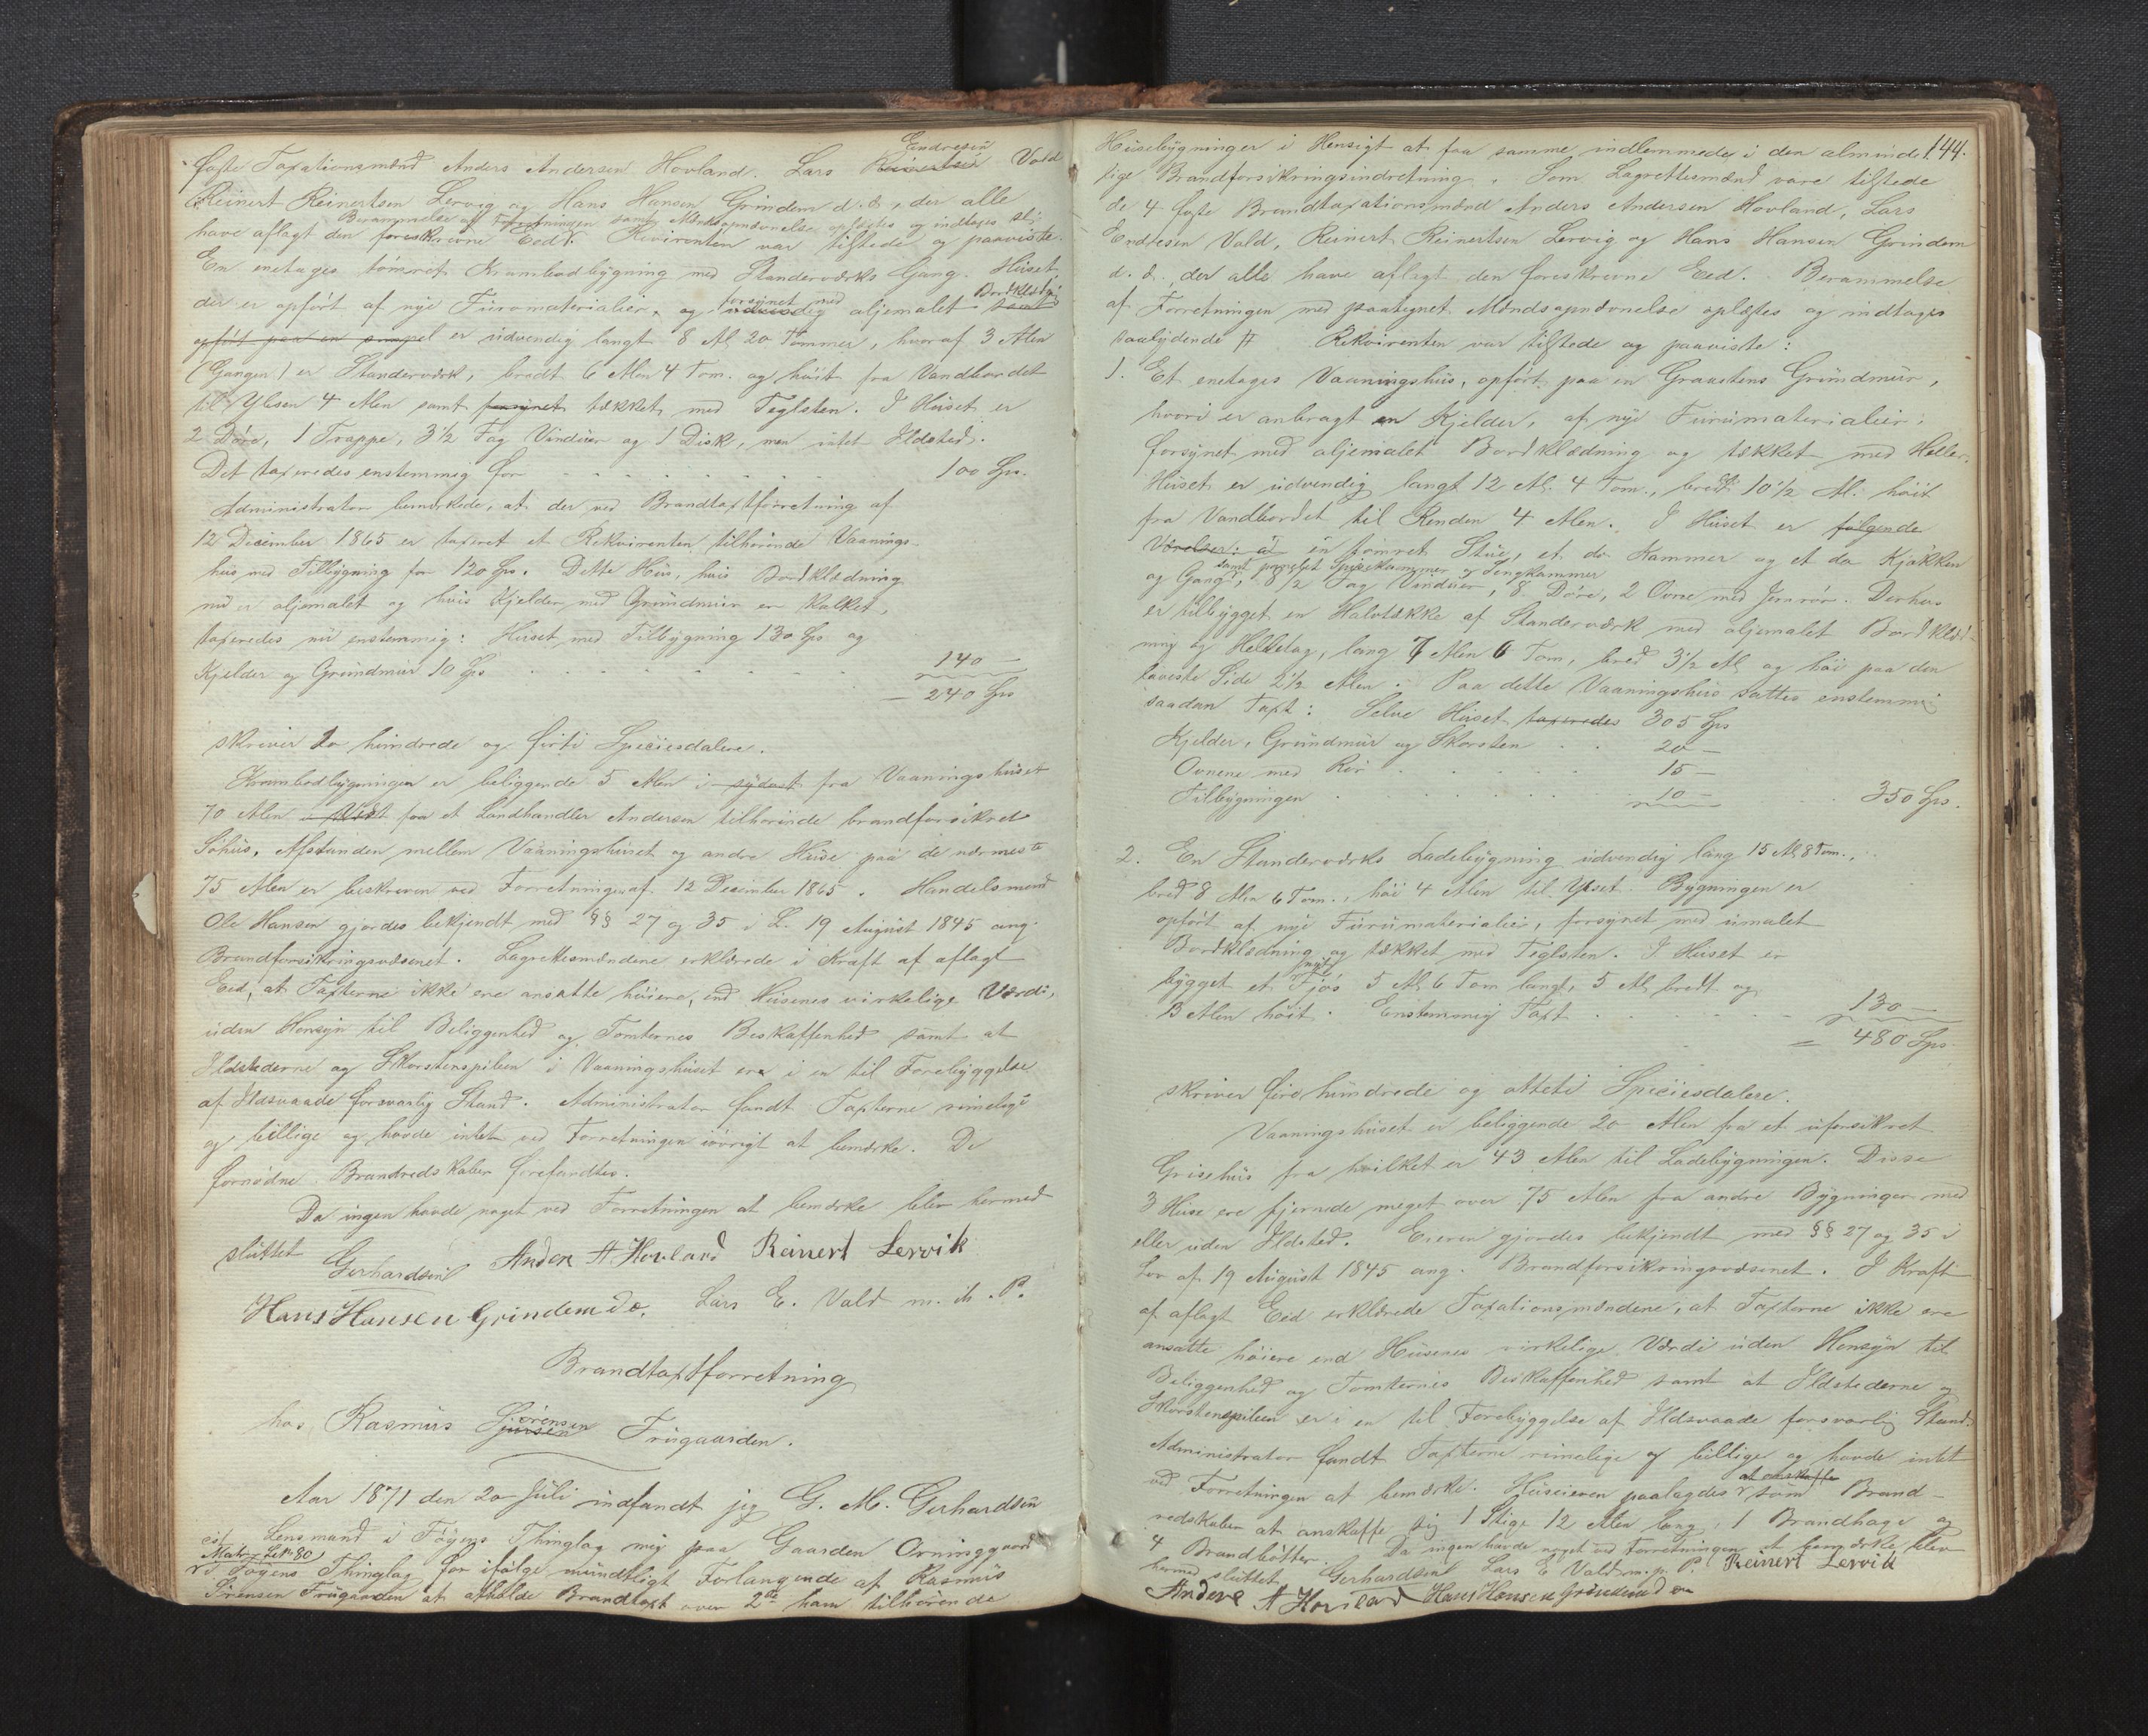 faste Taxationsmænd Anders Andersen Hovland. Lars Reinertsen Endresen Vald
Reinert Reinertsen Lervig og Hans Hansen Grindem d. æ, der alle
Berammelse af Forretningen samt Mændsopnævnelse oplæstes og indtages
have aflagt den foreskrevne Eed. Rekvirenten var tilstede og paaviste.
En enetages tømret Krambodbygning med Standerværks Gang. Huset
der er opført af nye Furumaterialier, og udvendig forsynet med oljemalet Bordklædning samt
opført paa en simpel er udvendig langt 8 Al 20 Tommer, hvoraf 3 Alen
(Gangen) er Standerværk, bredt 6 Alen 4 Tom. og høit fra Vandbordet
til Ylsen 4 Alen samt forsynet tækket med Teglsten. I Huset er
2 Døre, 1 Trappe, 3½ Fag Vinduer og 1 Disk, men intet Ildsted.
Det taxeredes enstemmig for 100 Sps.
Administrator bemærkede, at der ved Brandtaxtforretning af
12 December 1865 er taxeret et Rekvirenten tilhørende Vaanings-
hus med Tilbygning for 120 Sps. Dette Hus, hvis Bordklædning
nu er oljemalet og hvis Kjelder med Grundmur er kalket,
taxeredes nu enstemmig: Huset med Tilbygning 130 Sps og
Kjelder og Grundmur 10 Sps 140 —
— 240 Sps
skriver To hundrede og førti Speciesdalere.
Krambodbygningen er beliggende 5 Alen i sydost fra Vaaningshuset
70 Alen i Vest fra et Landhandler Andersen tilhørende brandforsikret
Søhus. Afstanden mellem Vaaningshuset og andre Huse paa de nærmeste
75 Alen er beskreven ved Forretningen af 12 December 1865. Handelsmand
Ole Hansen gjordes bekjendt med §§ 27 og 35 i L. 19 August 1845 ang.
Brandforsikringsvæsenet. Lagrettesmændene erklærede i Kraft af aflagt
Eed, at Taxterne ikke ere ansatte høiere, end Husenes virkelige Værdi,
uden Hensyn til Beliggenhed og Tomternes Beskaffenhed samt at
Ildstederne og Skorstenspiben i Vaaningshuset ere i en til Forebyggelse
af Ildsvaade forsvarlig Stand. Administrator fandt Taxterne rimelige
og billige og havde intet ved Forretningen iøvrigt at bemærke. De
fornødne Brandredskaber forefandtes.
Da ingen havde noget ved Forretningen at bemærke blev hermed
sluttet
Gerhardsen Anders A Hovland Reinert Lervik
Hans Hansen Grindem d æ. Lars E. Vald m. ih. P.
Brandtaxtforretning
hos Rasmus Sjursen Sørensen Frugaarden.
Aar 1871 den 20 Juli indfandt jeg G. M. Gerhardsen
cst Lensmand i Føyens Thinglag mig paa Gaarden Orninggaard
Matr. Lk 80
i Føyens Thinglag for ifølge mundtligt Forlangende af Rasmus
Sørensen Frugaarden at afholde Brandtaxt over 2de ham tilhørende
144.
Husebygninger i Hensigt at faa samme indlemmede i den alminde-
lige Brandforsikringsindretning. Som Lagrettesmænd vare tilstede
de 4 faste Brandtaxationsmænd Anders Andersen Hovland, Lars
Endresen Vald, Reinert Reinertsen Lervig og Hans Hansen Grindem
d. æ., der alle have aflagt den foreskrevne Eed. Berammelse
af Forretningen med paategnet Mændsopnævnelse oplæstes og indtages
saalydende # Rekvirenten var tilstede og paaviste:
1. Et enetages Vaaningshus, opført paa en Graastens Grundmur,
hvori er anbragt en Kjelder, af nye Furumaterialier,
forsynet med oljemalet Bordklædning og tækket med Heller.
Huset er udvendig langt 12 Al. 4 Tom., bredt 10½ Al. høit
fra Vandbordet til Renden 4 Alen. I Huset er følgende
Værelser: a en tømret Stue, et do Kammer og et do Kjøkken
samt panelet Spisekammer og Sengkammer
og Gang, 8½ Fag Vinduer, 8 Døre, 2 Ovne med Jernrør. Derhos
er tilbygget en Halvtække af Standerværk med oljemalet Bordklæd-
ning og Helletag, lang 7 Alen 6 Tom, bred 3½ Al og høi paa den
laveste Side 2½ Alen. Paa dette Vaaningshus sattes enstemmig
saadan Taxt: Selve Huset taxeredes 305 Sps
Kjelder, Grundmur og Skorsten 20 —
Ovnene med Rør 15 —
Tilbygningen 10 — 350 Sps.
2. En Standerværks Ladebygning udvendig lang 15 Al 8 Tom.,
bred 8 Alen 6 Tom., høi 4 Alen til Ylset. Bygningen er
opført af nye Furumaterialier, forsynet med umalet
Bordklædning og tækket med Teglsten. I Huset er
bygget et nyt Fjøs 5 Al 6 Tom langt, 5 Al bredt og
3 Alen høit. Enstemmig Taxt 130 —
= 480 Sps
skriver fire hundrede og otteti Speciesdalere.
Vaaningshuset er beliggende 20 Alen fra et uforsikret
Grisehus fra hvilket er 43 Alen til Ladebygningen. Disse
3 Huse ere fjernede meget over 75 Alen fra andre Bygninger med
eller uden Ildsted. Eieren gjordes bekjendt med §§ 27 og 35 i
Lov af 19 August 1845 ang. Brandforsikringsvæsenet. I Kraft
af aflagt Eed erklærede Taxationsmændene, at Taxterne ikke ere
ansatte høiere end Husenes virkelige Værdi uden Hensyn til
Beliggenhed og Tomternes Beskaffenhed samt at Ildstederne og
Skorstenspiben er i en til Forebyggelse af Ildsvaade forsvarlig Stand.
Administrator fandt Taxterne rimelige og billige og havde intet
ved Forretningen at bemærke. Huseieren paalagdes at anskaffe som Brand-
redskaber at anskaffe sig 1 Stige 12 Alen lang, 1 Brandhage og
4 Brandbøtter. Da ingen havde noget ved Forretningen at bemærke blev
hermed sluttet Gerhardsen Lars E Vald m. p. P. Reinert Lervik
Anders A Hovland Hans Hansen Grindem d æ